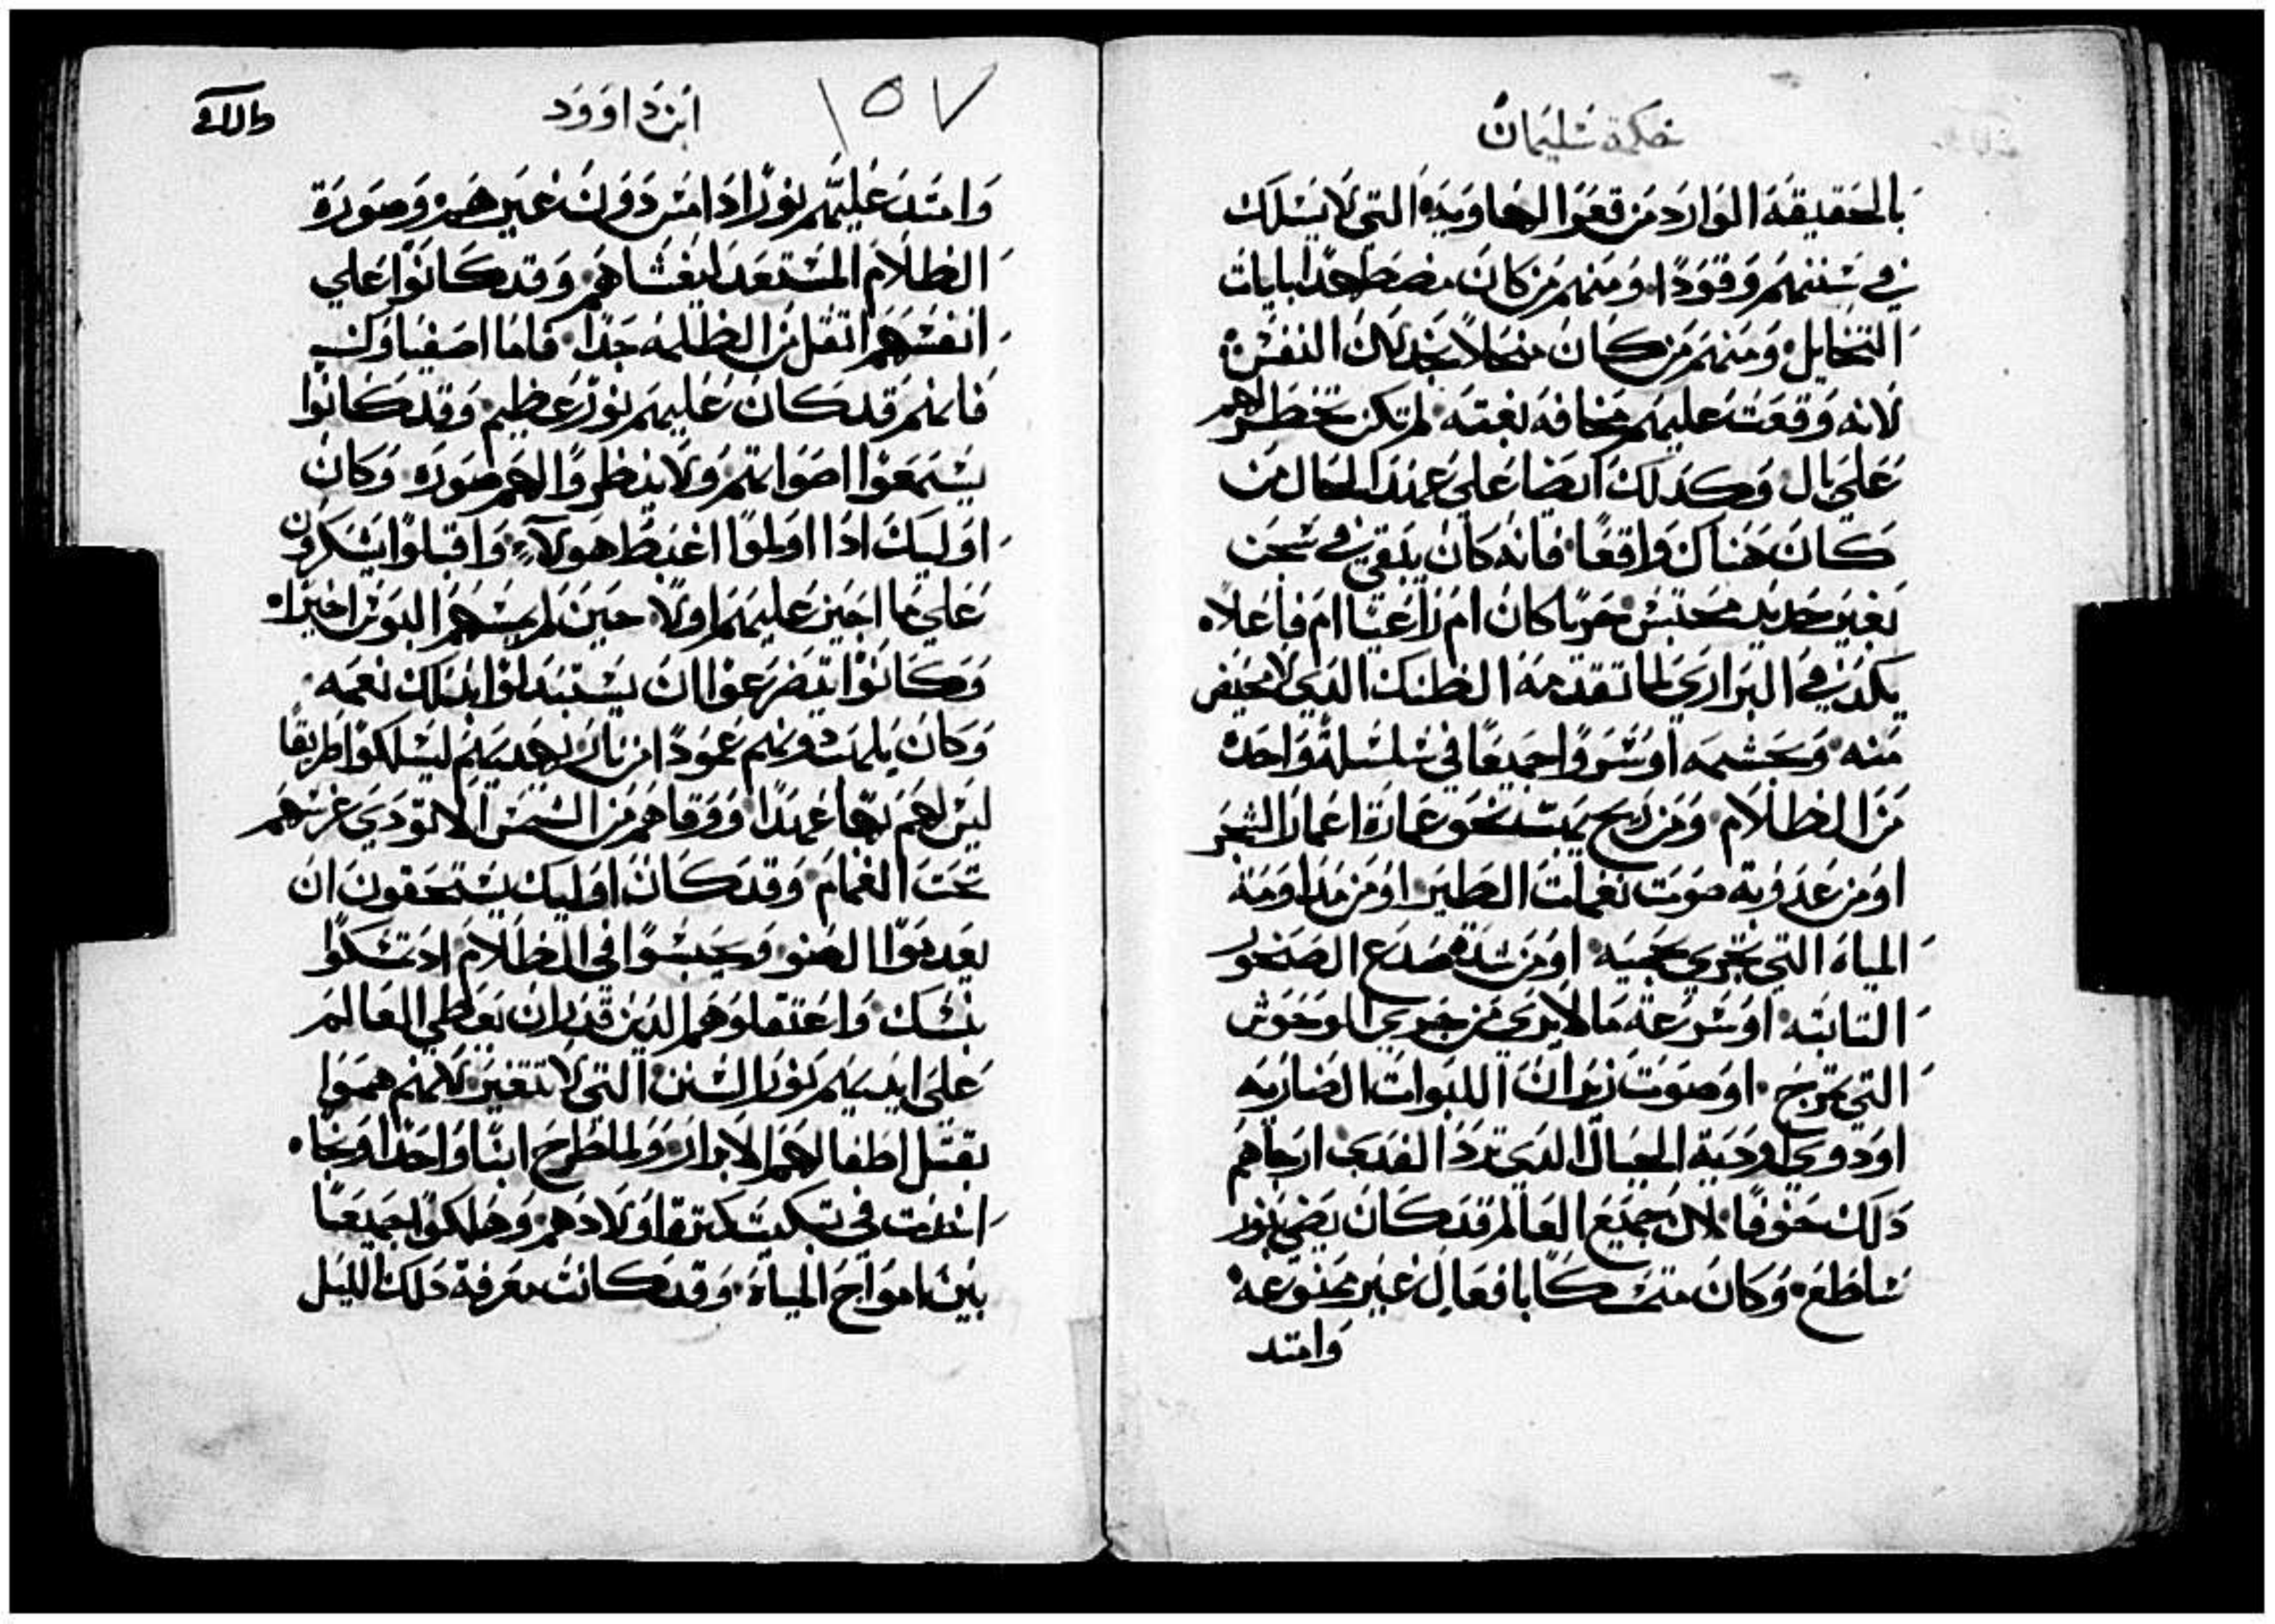 حكمة سليمان
بالحقيقة الوارد من قعر الهاوية التي لا يسلك
في سننهم وقودا ومنهم من كان مضطهدا بايات
التخايل ومنهم من كان منحلا بخذلان النفس
لانه وقعت عليهم مخافه بغته لم تكن تخطر لهم
علي بال وكذلك ايضا علي عمد الحال من
كان هناك واقعا فانه كان يبقي في سجن
بغير حديد محتبس حرتا كان ام راعيا ام فاعلا
يكد في البراري لما تقدمه الضنك الذي لا محيص
منه وتجشمه اوسروا جميعا في سلسلة واحده
من الظلام ومن ريح يمتد نحو عمارة اعمار الشجر
او من عذوبة صوت نغمات الطير او من مداومة
المياه التي تجري بحميه او من شدة صدع الصخور
الثابته او سرعة ما لا يري من جري الوحوش
التي تمرح او صوت زيران اللبوات الضاريه
او دوي اودية الجبال الذي يرد الصدي ارجاهم
ذلك خوفا لان جميع العالم قد كان يضي بنور
ساطع وكان متمسكا بافعال غير ممنوعه
وامتد
ابن داوود
١٥٧
وامتد عليهم نورا دامس دون غيرهم وصورة
الظلام المستعد ليغشاهم وقد كانوا علي
انفسهم اثقل من الظلمه جدا فاما اصفياوك
فانهم قد كان عليهم نور عظيم وقد كانوا
يستمعوا اصواتهم ولا ينظروا لهم صوره وكان
اوليك اذا اولموا اغتبط هولاء واقبلوا يشكرون
علي ما اجين عليهم اولا حين لم يمسهم البوس اخيرا
وكانوا يتضرعوا ان يستبدلوا بذلك نعمه
وكان يلمت دونهم عمودا من نار يهديهم ليسلكوا طريقا
ليس لهم بها عهدا ووقاهم من الشمس لا تودي غرسهم
تحت الغمام وقد كان اوليك يستحقون ان
يعدموا الضو ويحبسوا في الظلام اذ تمسكوا
بنسك واعتقلوهم الذين قد بان يعطي العالم
علي ايديهم نور السنن التي لا تتغير لانهم هموا
بقتل اطفالهم الابرار ولما طرح ابنا واحدا ونجا
اخذت في تبكيت كثرة اولادهم وهلكوا جميعا
بين امواج المياه وقد كانت معرفة ذلك الليل